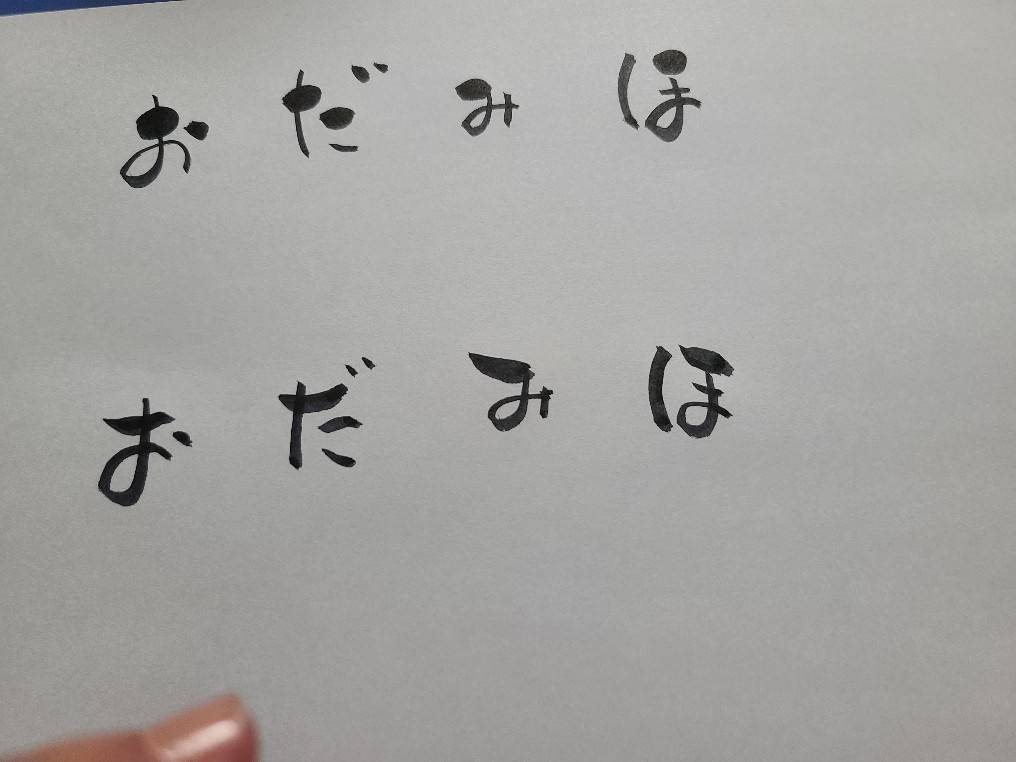 おだみほ
おだみほ